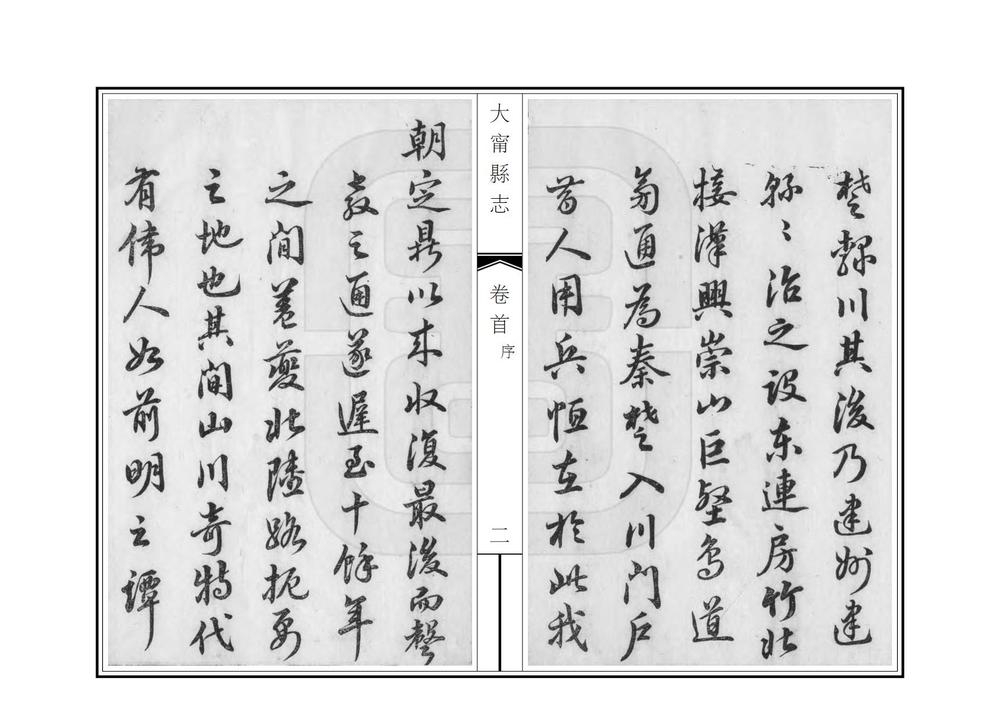 楚隸川其後乃建州建
縣縣治之設東連房竹北
接漢興崇山巨壑鳥道
旁通為秦楚入川門戶
昔人用兵恆在於此我
大甯縣志
卷首
序
二
朝定鼎以來收復最後而聲
教之通遂遲至十餘年
之間蓋夔北隘路扼要
之地也其間山川奇特代
有偉人如前明之譚